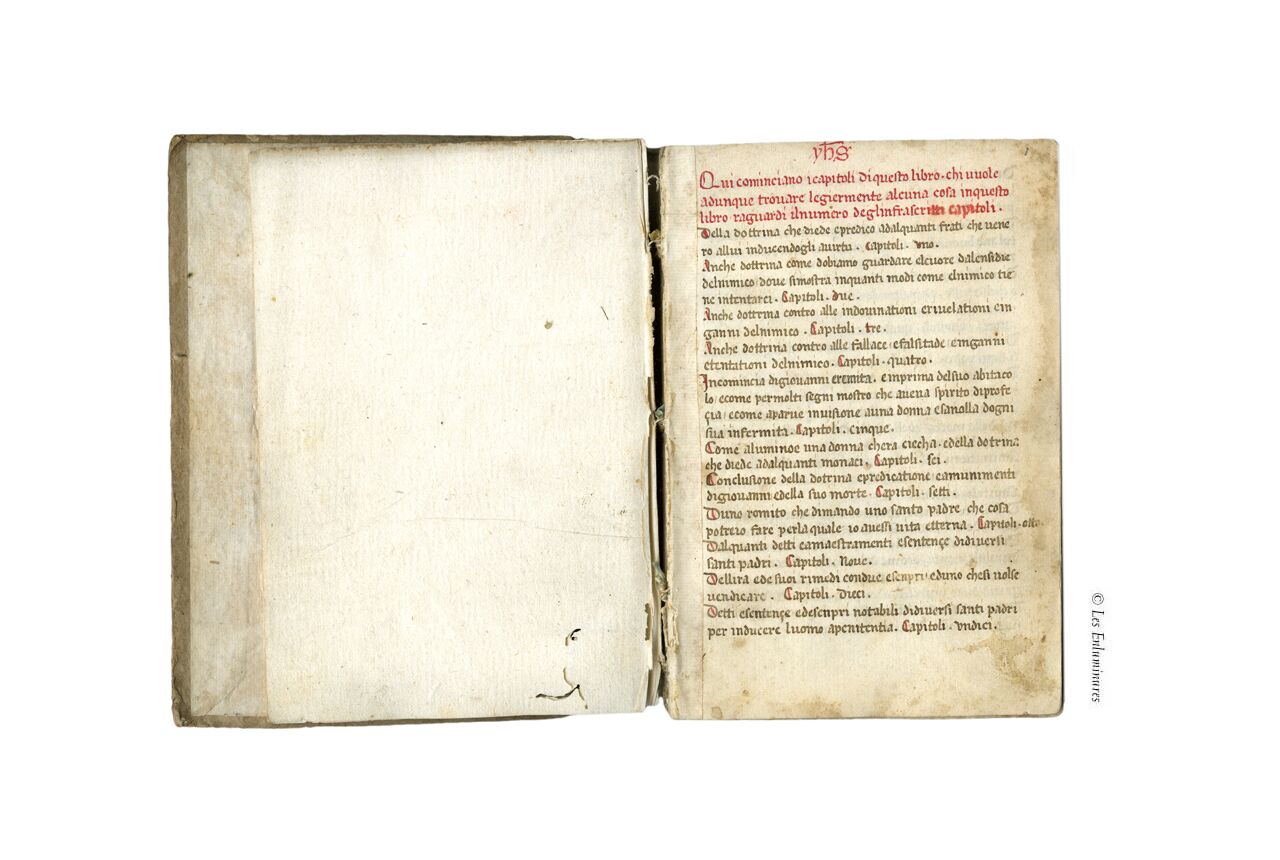 yhs
1
Qui cominciano icapitoli di questo libro. chi uuole
adunque trouare legiermente alcuna cosa inquesto
libro raguardi ilnumero deglinfrascritti capitoli.
Della dottrina che diede epredico adalquanti frati che uene
ro allui inducendogli auirtu. Capitoli. vno.
Anche dottrina come dobiamo guardare elcuore dalensidie
delnimico doue simostra inquanti modi come elnimico tie
ne intentarci. Capitoli. due.
Anche dottrina contro alle indouinationi eriuelationi ein
ganni delnimico. Capitoli. tre.
Anche dottrina contro alle fallace efalsitade einganni
etentationi delnimico. Capitoli. quatro.
Incomincia digiouanni eremita. eimprima delsuo abitaco
lo ecome permolti segni mostro che auena spirito diprofe
çia ecome aparue inuisione auna donna esanolla dogni
sua infermita. Capitoli. cinque.
Come aluminoe una donna chera ciecha. edella dotrina
che diede adalquanti monaci. Capitoli. sei.
Conclusione della dotrina epredicatione eamunimenti
digiouanni edella suo morte. Capitoli. setti.
Duno romito che dimando uno santo padre che cosa
potreio fare perla quale io auessi uita etterna. Capitoli. otto
Dalquanti detti eamaestramenti esentençe didiuersi
santi padri. Capitoli. Noue.
Dellira ede suoi rimedi condue esenpri eduno chesi uolse
uendicare. Capitoli. Dieci.
Detti esentençe edesenpri notabili didiuersi santi padri
per inducere luomo apenitentia. Capitoli. vndici.
© Les Enluminures